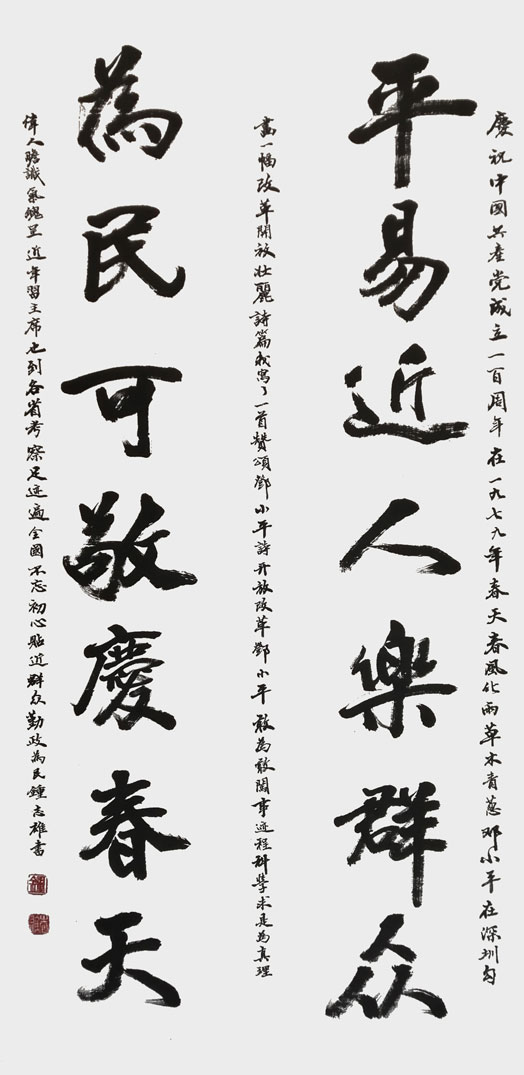 慶祝中國共產党成立一百周年在一九七九年春天春風化雨草木青蔥邓小平在深圳勾
平易近人樂群众
畫一幅改革開放壯麗詩篇我寫了一首贊頌鄧小平詩开放改革鄧小平敢為敢闖事迹程科學求是為真理
為民可敬慶春天
偉人膽識氣魄呈近年習主席也到各省考察足迹遍全國不忘初心貼近群众勤政為民鍾志雄書